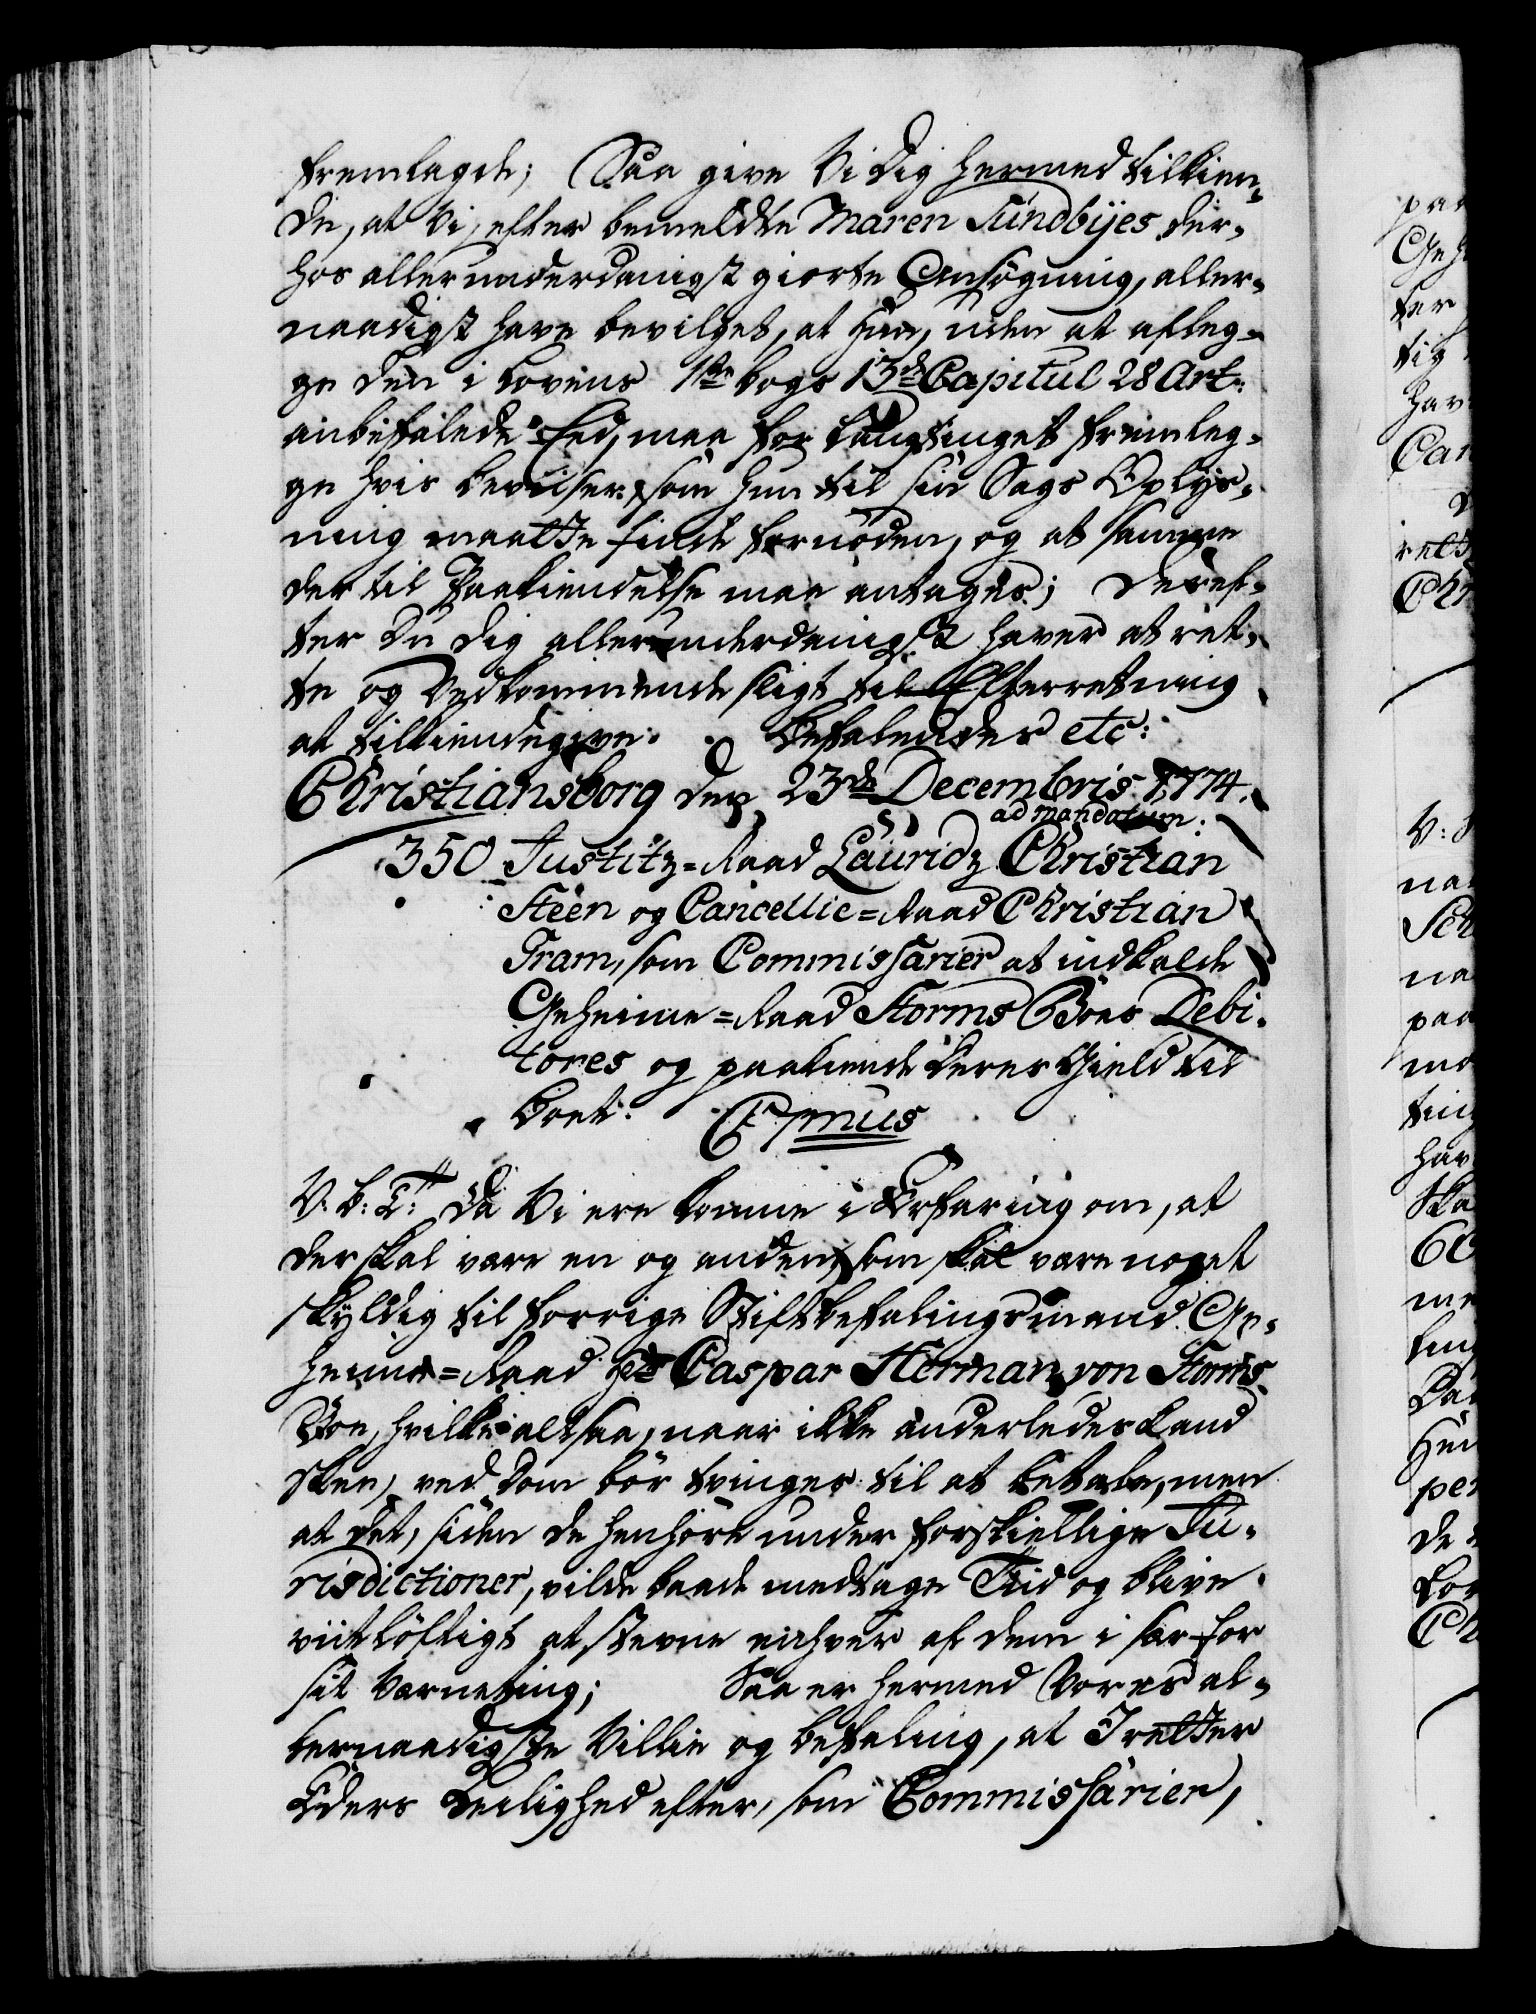 fremlagde; Saa give Vi Dig hermed tilkien-
de, at Vi, efter bemeldte Maren Sundbÿes der-
hos allerunderdanigst giorte Ansøgning, aller-
naadigst have bevilget, at hun, uden at afleg-
ge den i Lovens 1ste Bogs 13de Capitul 28 Art:
anbefalede Eed, maa for Laugtinget fremleg-
ge hvis Beviiser, som hun til sin Sags Oplys-
ning maatte finde fornøden, og at samme
der til Paakiendelse maa antages; Deref-
ter Du Dig allerunderdanigst haver at ret-
te og Vedkommende sligt til Efterretning
at tilkiendegive. Befalendes etc:
Christiansborg den 23de Decembris 1774.
ad mandatum:
350 Justitz=Raad Lauridz Christian
Steen og Cancellie=Raad Christian
Fram, som Commissarier at indkalde
Geheime=Raad Storms Boes Debi-
tores og paakiende deres Gield til
Boet. Cpmus
V. G: T: Da Vi ere komne i Erfaring om, at
der skal være en og anden, som skal være noget
skÿldig til forrige Stiftbefalingsmand Ge-
heime=Raad Hr Caspar Herman von Storms
Boe, hvilke altsaa, naar ikke anderledes kand
skee, ved Dom bør tvinges til at betale, men
at det, siden de henhøre under forskiellige Ju-
risdictioner, vilde baade medtage Tiid og blive
viitløftigt at stevne enhver af dem i sær for
sit Værneting; Saa er hermed Vores al-
lernaadigste Villie og Befaling, at I retter
Eders Leilighed efter, som Commissarier,